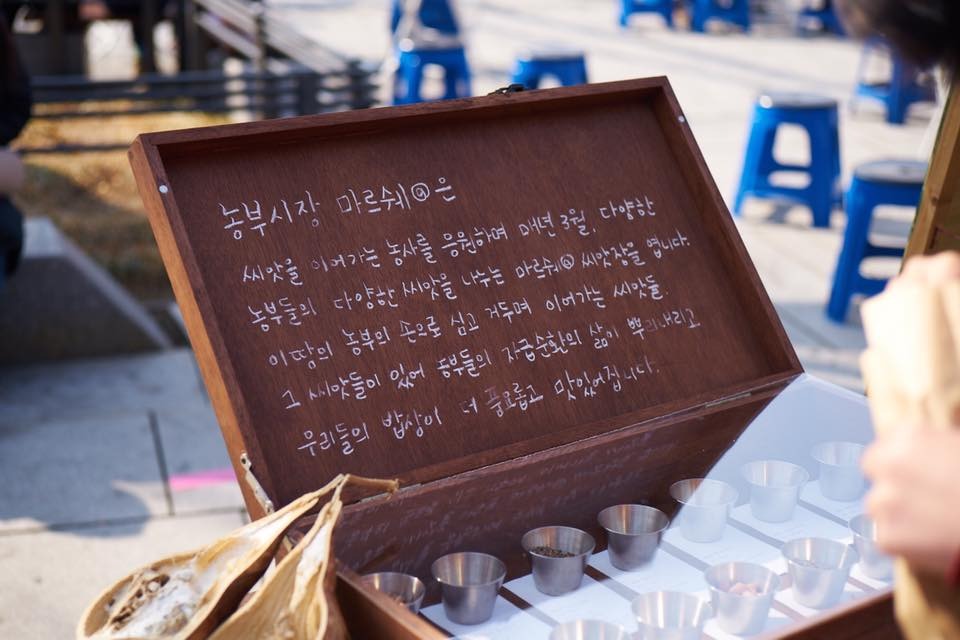 농부시장 마르쉐@은
씨앗을 이어가는 농사를 응원하며 매년 3월, 다양한
농부들의 다양한 씨앗을 나누는 마르쉐@ 씨앗장을 엽니다.
이 땅의 농부의 손으로 심고 거두며 이어가는 씨앗들.
그 씨앗들이 있어 농부들의 자급순환의 삶이 뿌리내리고
우리들의 밥상이 더 풍요롭고 맛있어집니다.